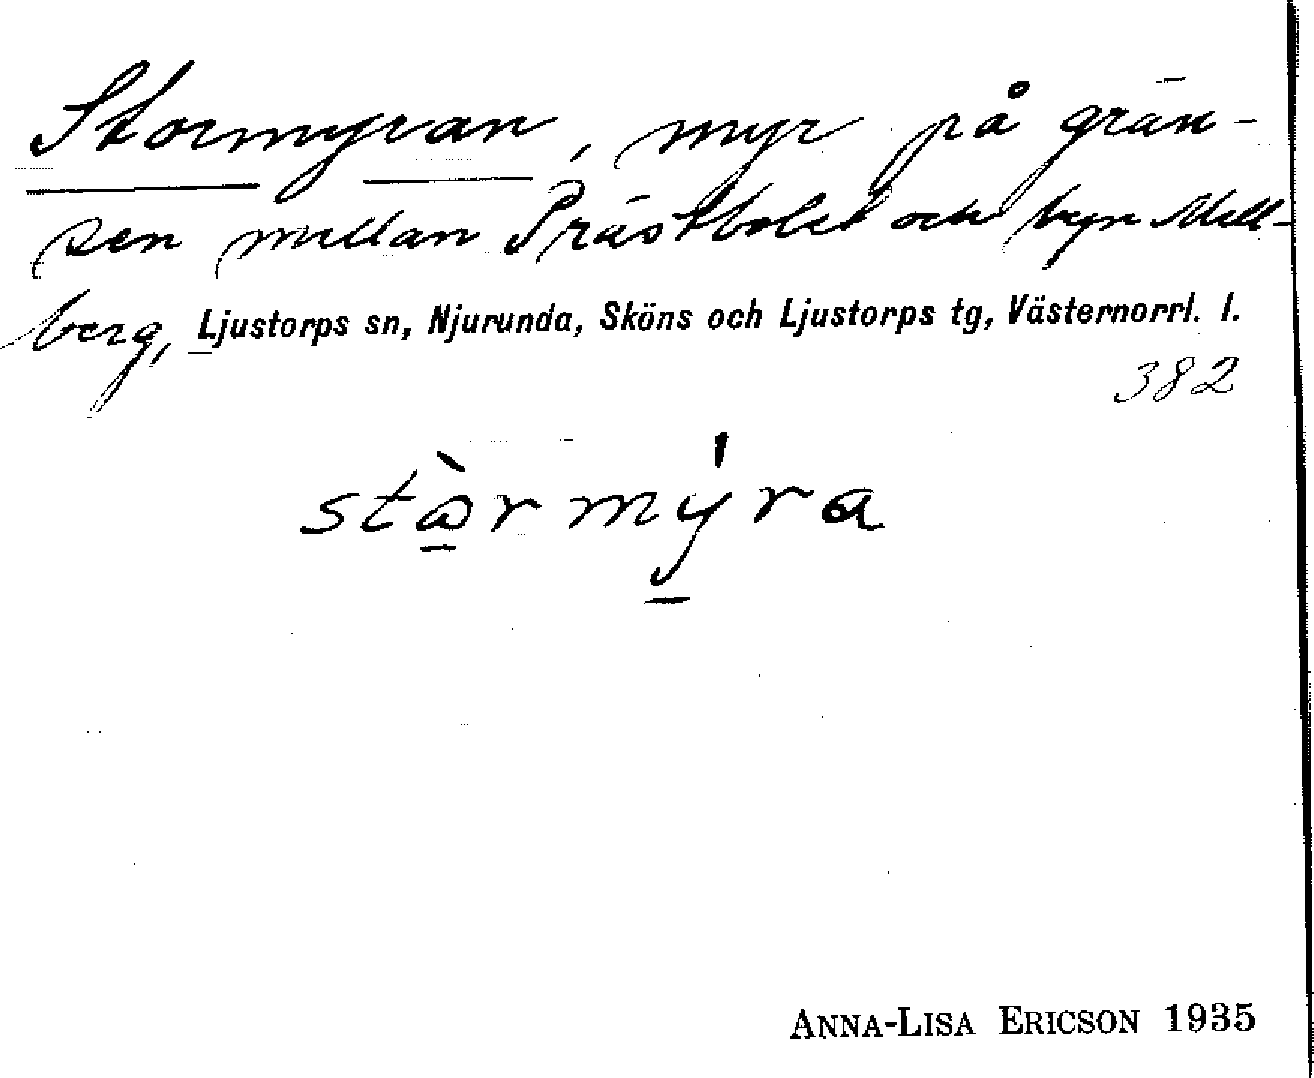 Stormyran, myr på grän-
sen mellan Prästbolet och byn Mell-
berg, Ljustorps sn, Njurunda, Sköns och Ljustorps tg, Västernorrl. l.
382
stòrmýra
ANNA-LISA ERICSON 1935